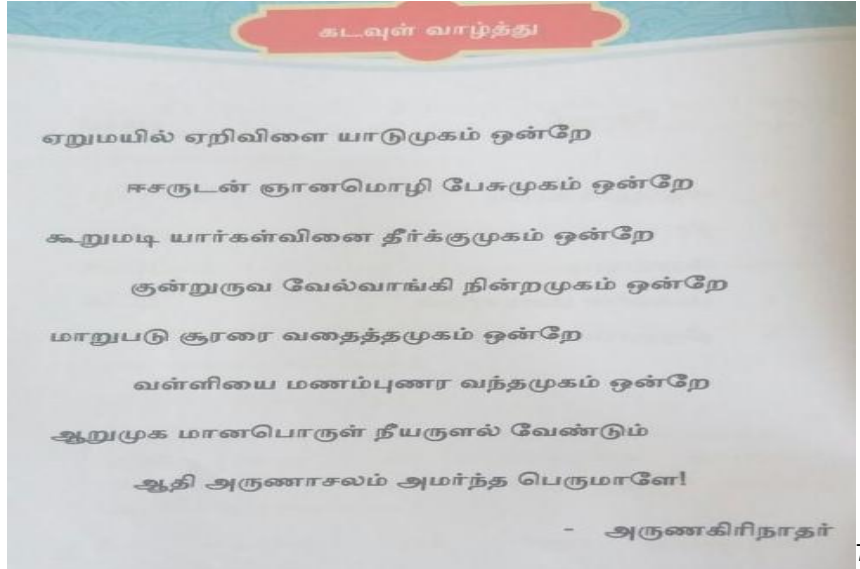 கடவுள் வாழ்த்து
ஏறுமயில் ஏறிவிளை யாடுமுகம் ஒன்றே
ஈசருடன் ஞானமொழி பேசுமுகம் ஒன்றே
கூறுமடி யார்கள்வினை தீர்க்குமுகம் ஒன்றே
குன்றுருவ வேல்வாங்கி நின்றமுகம் ஒன்றே
மாறுபடு சூரரை வதைத்தமுகம் ஒன்றே
வள்ளியை மணம்புணர வந்தமுகம் ஒன்றே
ஆறுமுக மானபொருள் நீயருளல் வேண்டும்
ஆதி அருணாசலம் அமர்ந்த பெருமாளே!
- அருணகிரிநாதர்